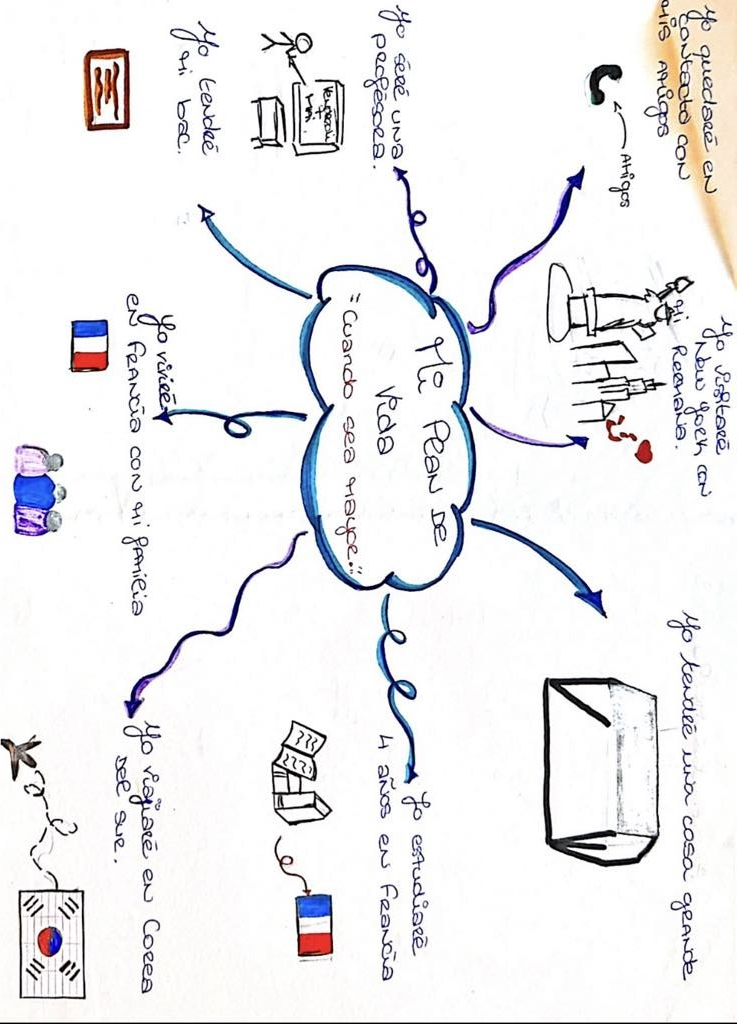 Yo quedaré en
contacto con
mis amigos
Amigos
Yo visitaré
New York con
mi hermana.
Yo tendré una casa grande
Yo seré una
profesora.
Mi Plan de
Vida
"Cuando sea mayor."
Yo estudiaré
4 años en Francia
Yo tendré
mi bac.
Yo viviré
en Francia con mi familia
Yo viajaré en Corea
del sur.